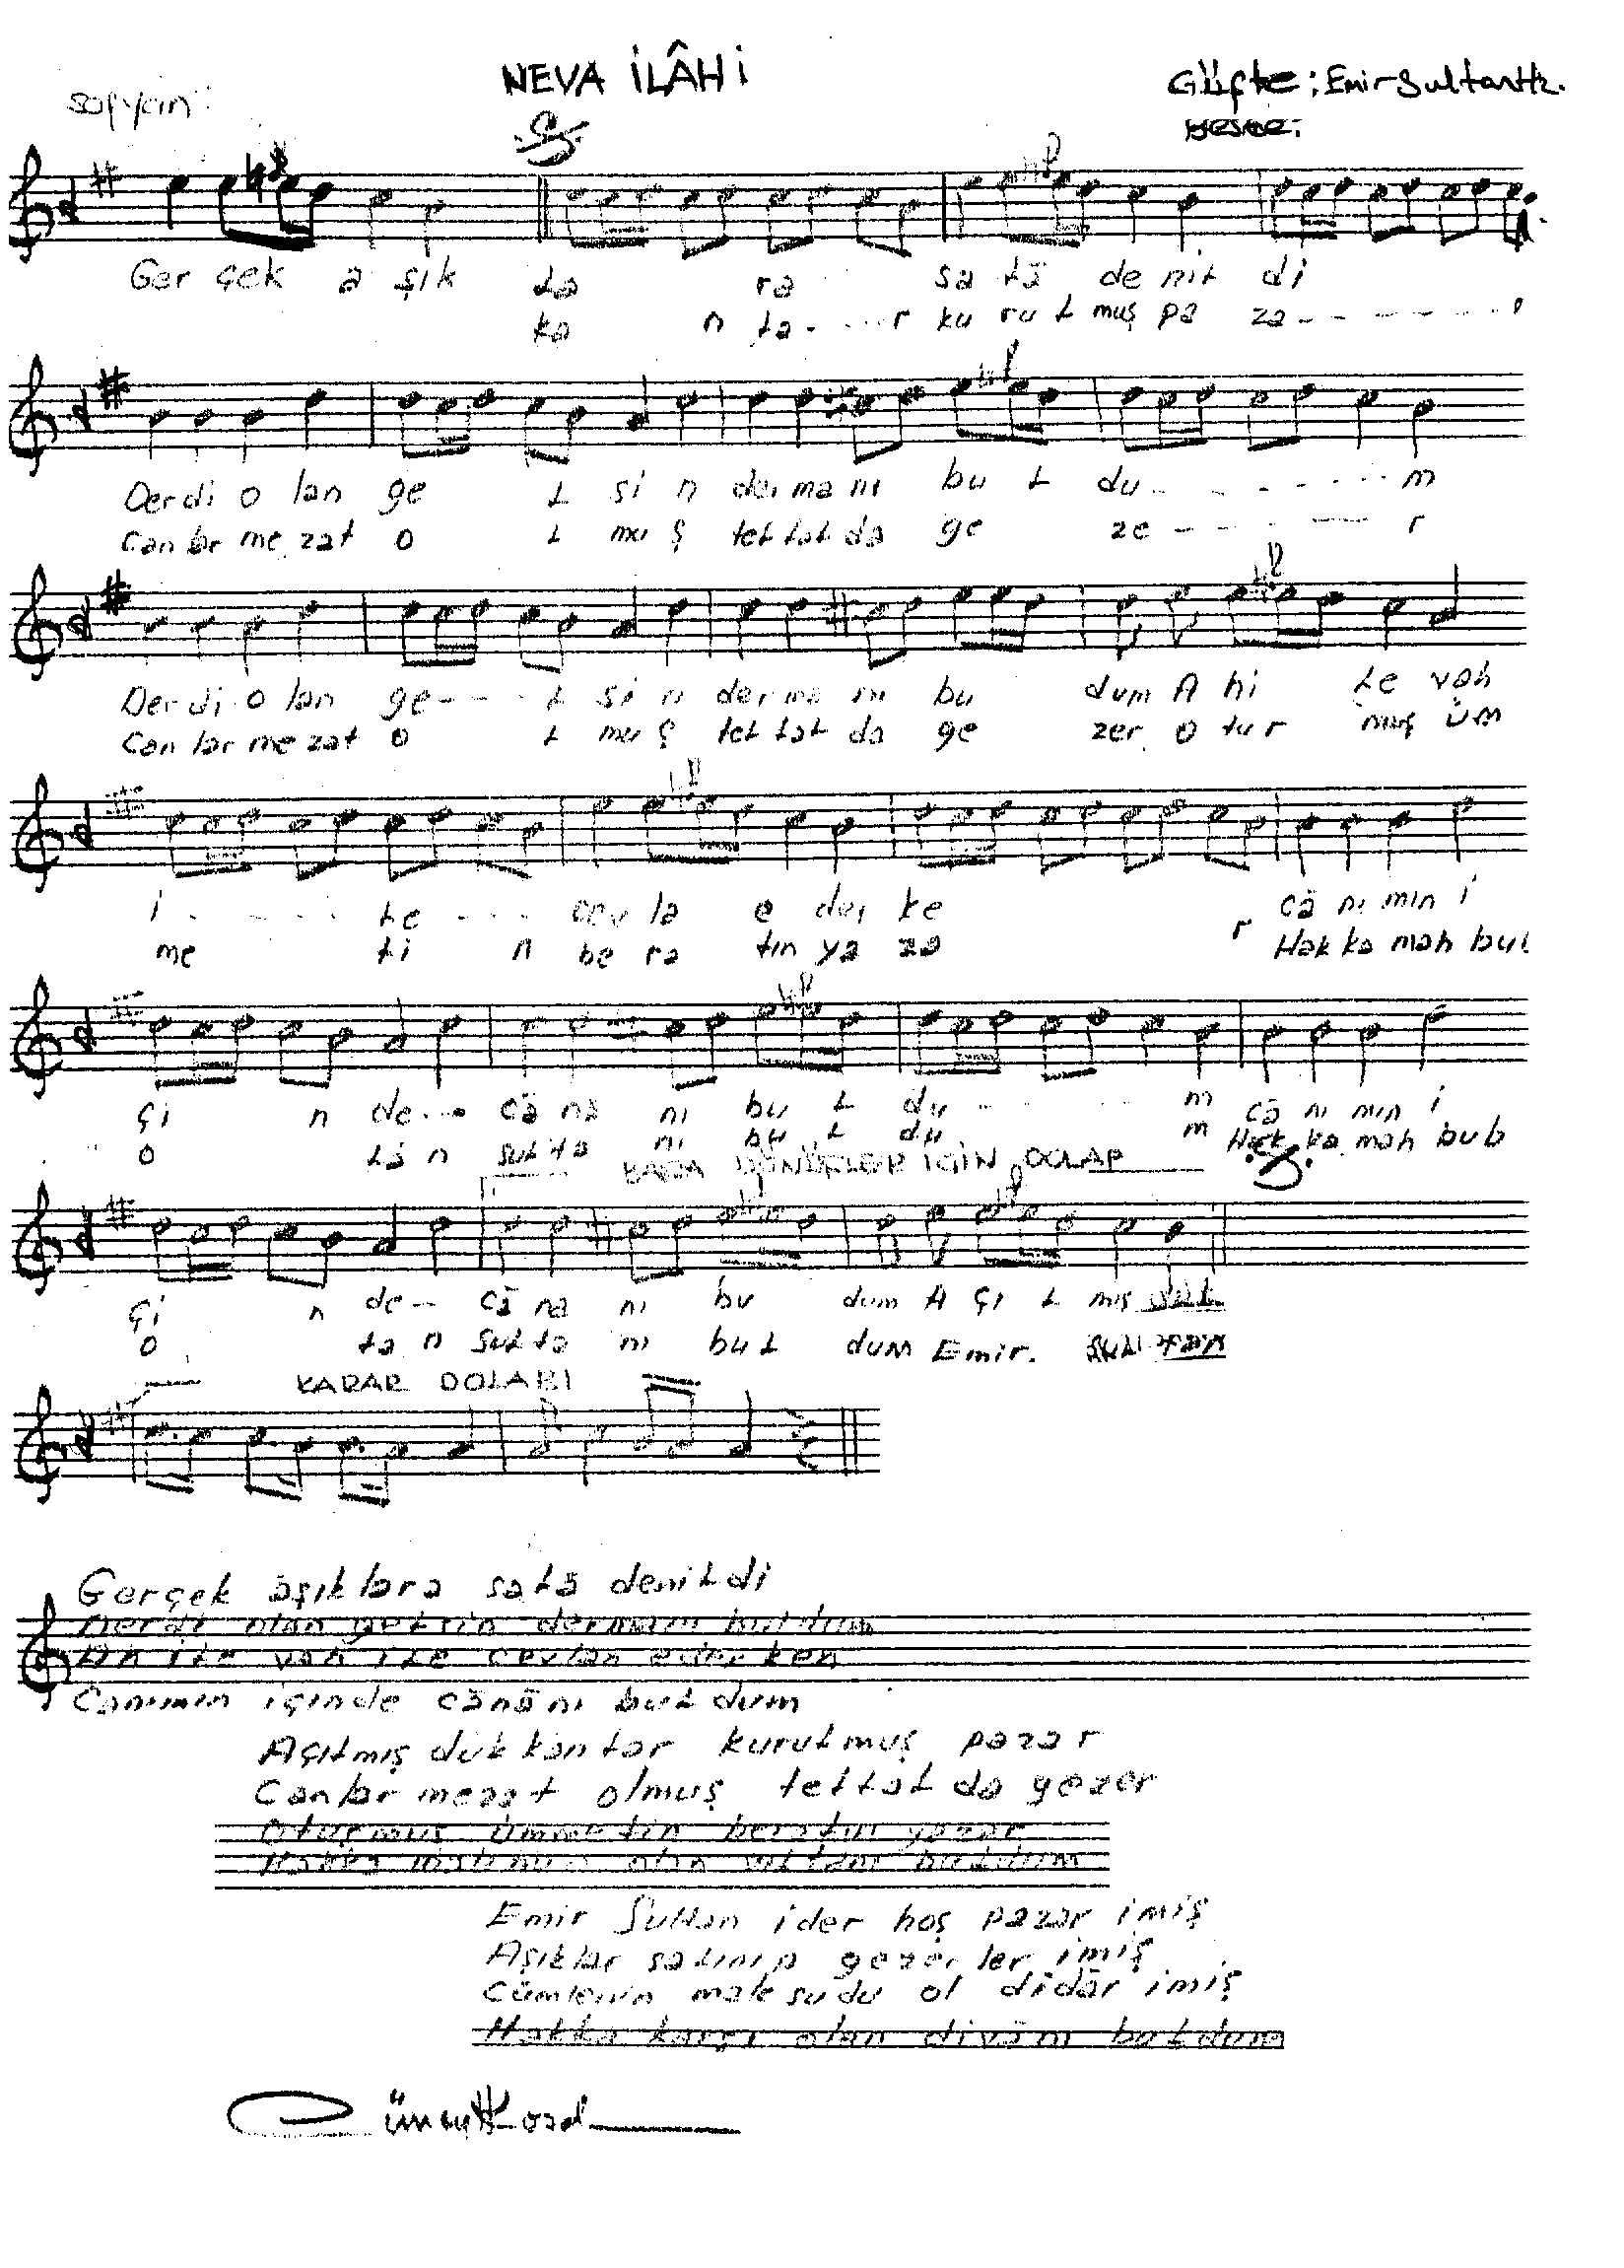 NEVA İLÂHİ
sofyan
Güfte: Emir Sultan Hz.
Beste:
Ger çek a şık la ra sa lâ de nil di
ka n la - - - r ku ru l muş pa za - - - - - - r
Derdi o lan ge l si n der ma nı bu l du - - - - - - m
Can lar me zat o l mu ş tel lal da ge ze - - - - r
Der di o lan ge - - - l si n der ma nı bu dum A hi le vah
Can lar me zat o l mu ş tel lal da ge zer o tur muş üm
i - - - - le - - - cev la e der ke
me ti n be ra tın ya za r
câ nı mın i
Hak ka mah bub
çi n de - - câ nâ nı bu l du - - - - m câ nı mın i
o la n sul ta nı bu l du m Hak ka mah bub
BAŞA DÖNÜŞLER İÇİN DOLAP
çi n de - - câ na nı bu dum A çı l mış dük
o la n sul ta nı bu l dum Emir. Sul tan
KARAR DOLABI
Gerçek âşıklara salâ denildi
Derdi olan gelsin dermanı buldum
Ah ile vah ile cevlan ederken
Canımın içinde cânânı buldum
Açılmış dükkanlar kurulmuş pazar
Canlar mezat olmuş tellal da gezer
Oturmuş ümmetin beratın yazar
Hakka mahbub olan sultanı buldum
Emir Sultan ider hoş pazar imiş
Aşıklar salınıp gezerler imiş
Cümlenin maksudu ol dîdâr imiş
Hakka karşı olan divânı buldum